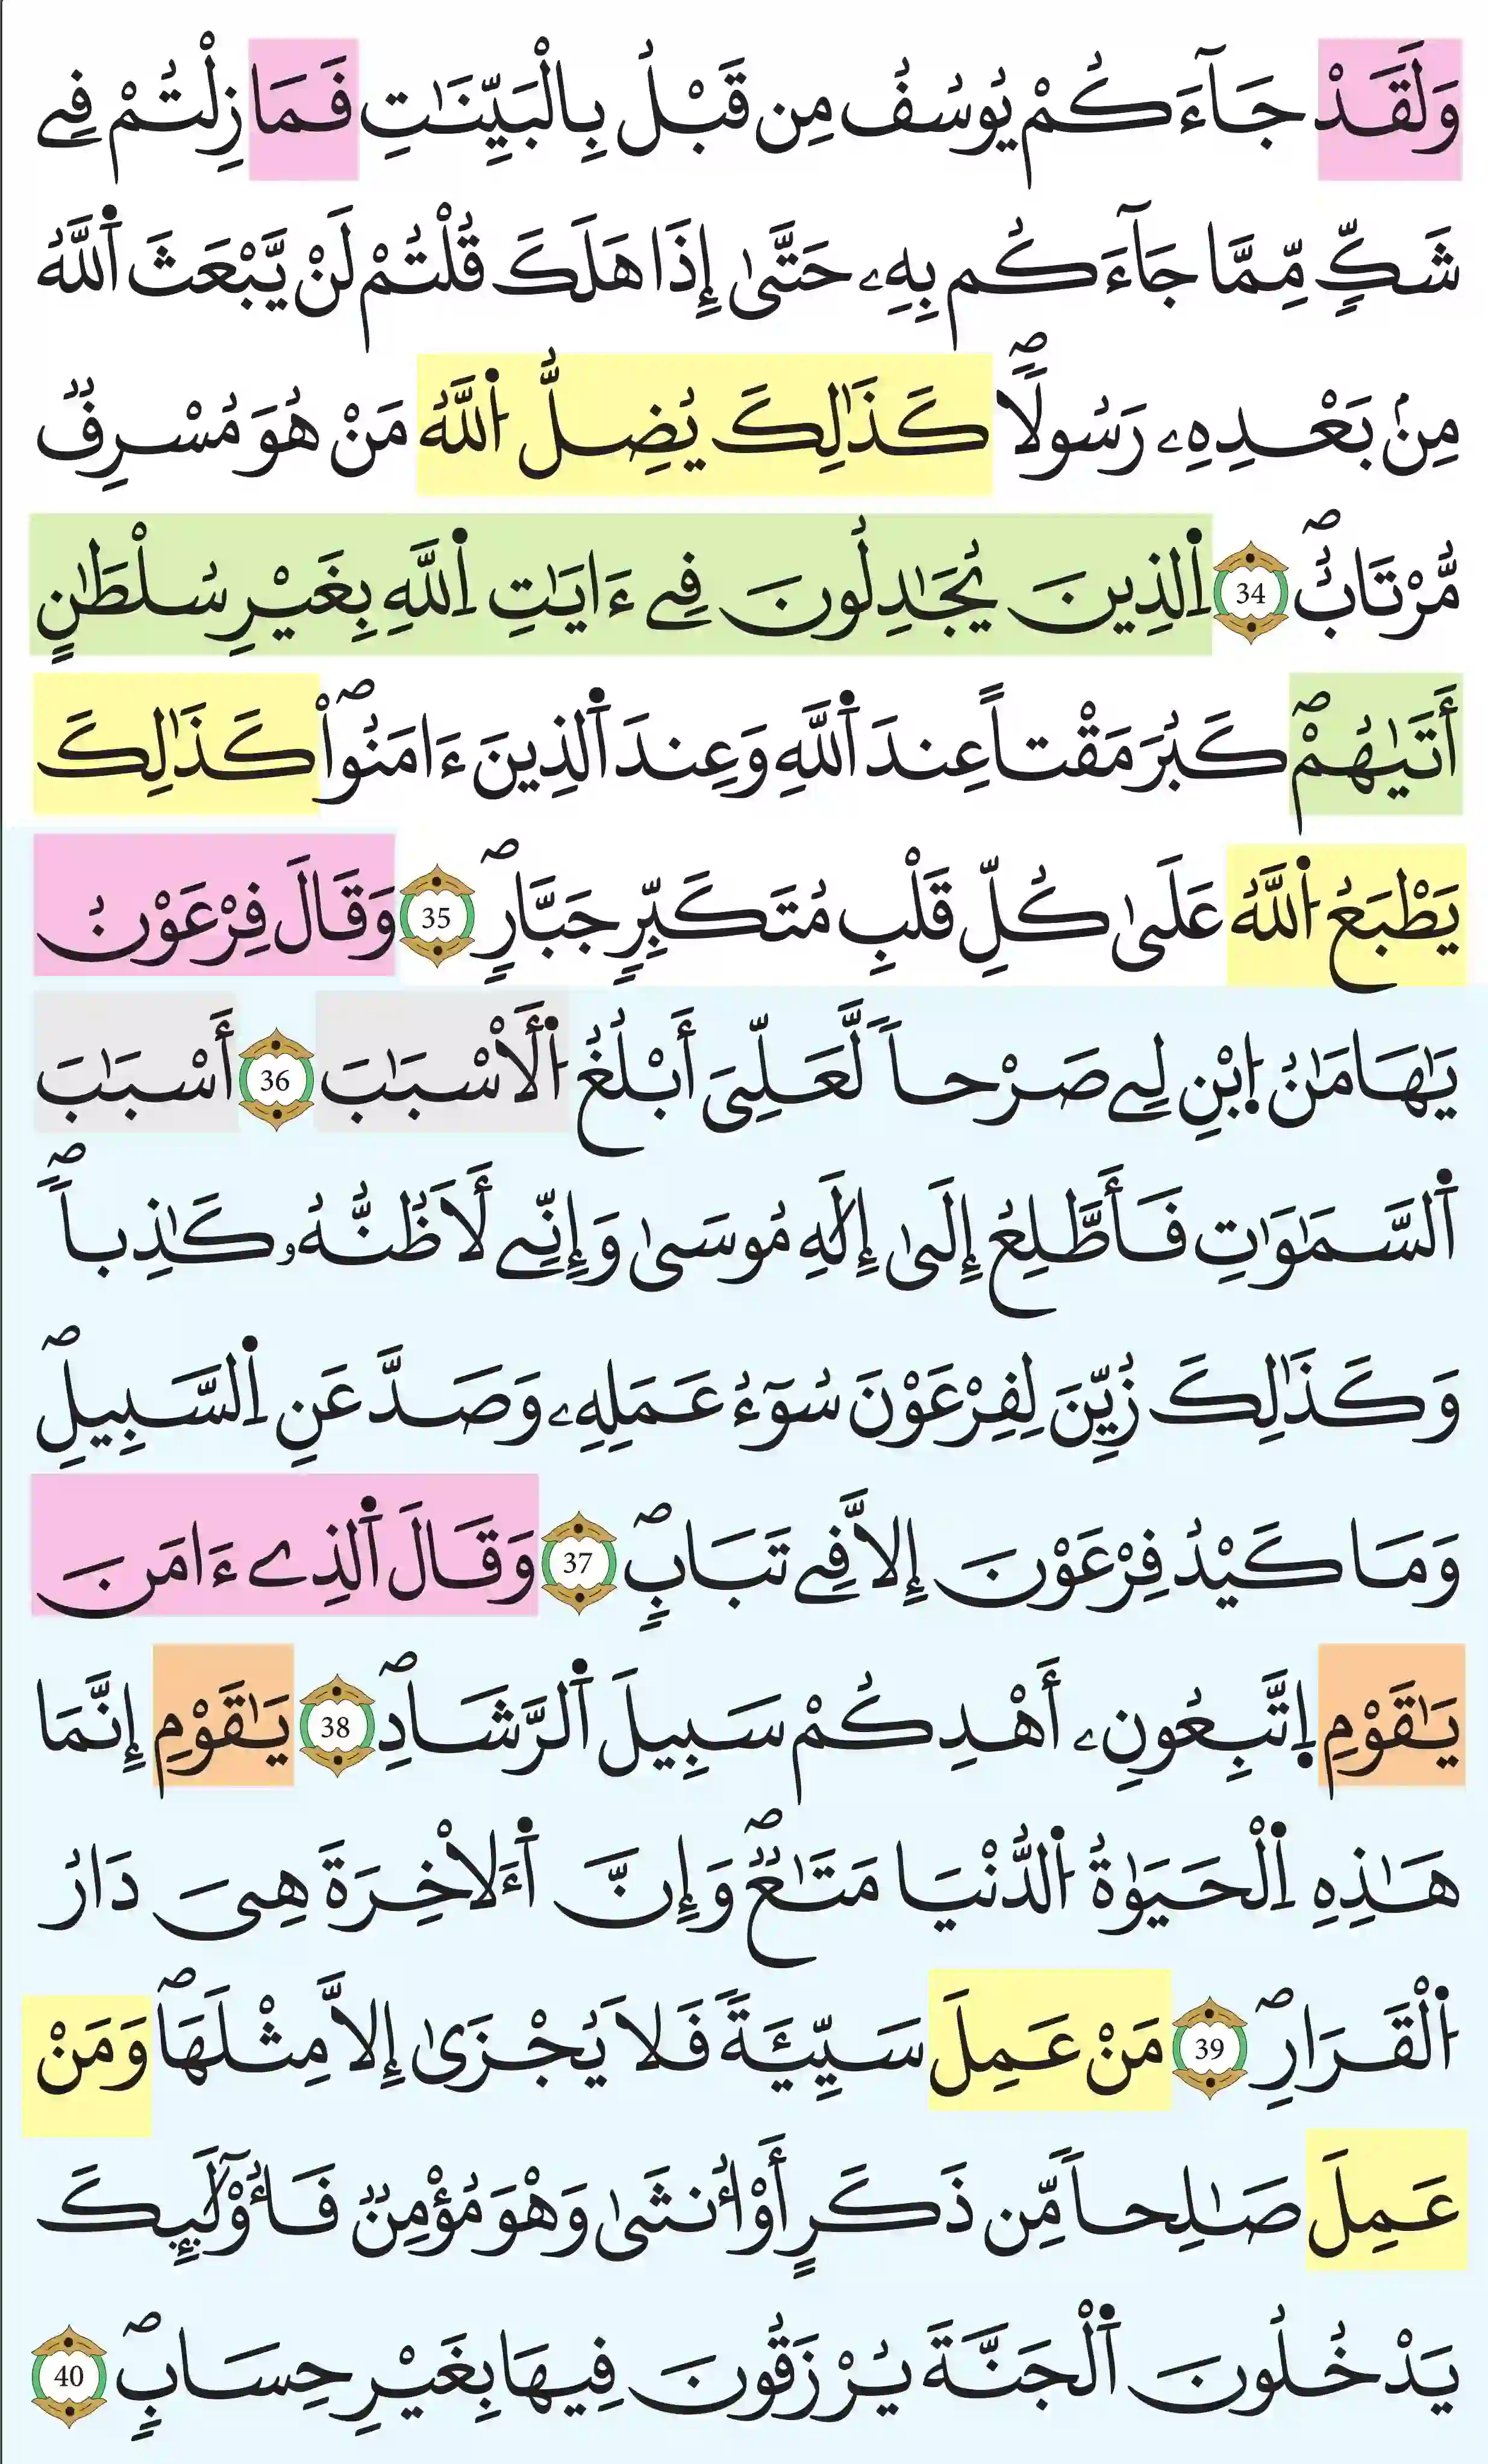 وَلَقَدْ جَآءَكُمْ يُوسُفُ مِن قَبْلُ بِالْبَيِّنَٰتِ فَمَا زِلْتُمْ فِے
شَكٍّ مِّمَّا جَآءَكُم بِهِۦ حَتَّىٰ إِذَا هَلَكَ قُلْتُمْ لَنْ يَّبْعَثَ اَ۬للَّهُ
مِنۢ بَعْدِهِۦ رَسُولاٗۖ كَذَٰلِكَ يُضِلُّ اُ۬للَّهُ مَنْ هُوَ مُسْرِفٞ
مُّرْتَابٌۖ 34 اِ۬لذِينَ يُجَٰدِلُونَ فِےٓ ءَايَٰتِ اِ۬للَّهِ بِغَيْرِ سُلْطَٰنٍ
أَتَيٰهُمْۖ كَبُرَ مَقْتاً عِندَ اَ۬للَّهِ وَعِندَ اَ۬لذِينَ ءَامَنُواْۖ كَذَٰلِكَ
يَطْبَعُ اُ۬للَّهُ عَلَىٰ كُلِّ قَلْبِ مُتَكَبِّرٍ جَبَّارٍۖ 35 وَقَالَ فِرْعَوْنُ
يَٰهَامَٰنُ اُ۪بْنِ لِے صَرْحاٗ لَّعَلِّيَ أَبْلُغُ اُ۬لَاسْبَٰبَ 36 أَسْبَٰبَ
اَ۬لسَّمَٰوَٰتِ فَأَطَّلِعُ إِلَىٰٓ إِلَٰهِ مُوسَىٰ وَإِنِّے لَأَظُنُّهُۥ كَٰذِباٗۖ
وَكَذَٰلِكَ زُيِّنَ لِفِرْعَوْنَ سُوٓءُ عَمَلِهِۦ وَصَدَّ عَنِ اِ۬لسَّبِيلِۖ
وَمَا كَيْدُ فِرْعَوْنَ إِلَّا فِے تَبَابٍۖ 37 وَقَالَ اَ۬لذِےٓ ءَامَنَ
يَٰقَوْمِ اِ۪تَّبِعُونِۦ أَهْدِكُمْ سَبِيلَ اَ۬لرَّشَادِۖ 38 يَٰقَوْمِ إِنَّمَا
هَٰذِهِ اِ۬لْحَيَوٰةُ اُ۬لدُّنْيَا مَتَٰعٞۖ وَإِنَّ اَ۬لَاخِرَةَ هِيَ دَارُ
اُ۬لْقَرَارِۖ 39 مَنْ عَمِلَ سَيِّئَةٗ فَلَا يُجْزَىٰٓ إِلَّا مِثْلَهَاۖ وَمَنْ
عَمِلَ صَٰلِحاٗ مِّن ذَكَرٍ أَوُ ا۟نثَىٰ وَهْوَ مُؤْمِنٞ فَأُوْلَٰٓئِكَ
يَدْخُلُونَ اَ۬لْجَنَّةَ يُرْزَقُونَ فِيهَا بِغَيْرِ حِسَابٍۖ 40